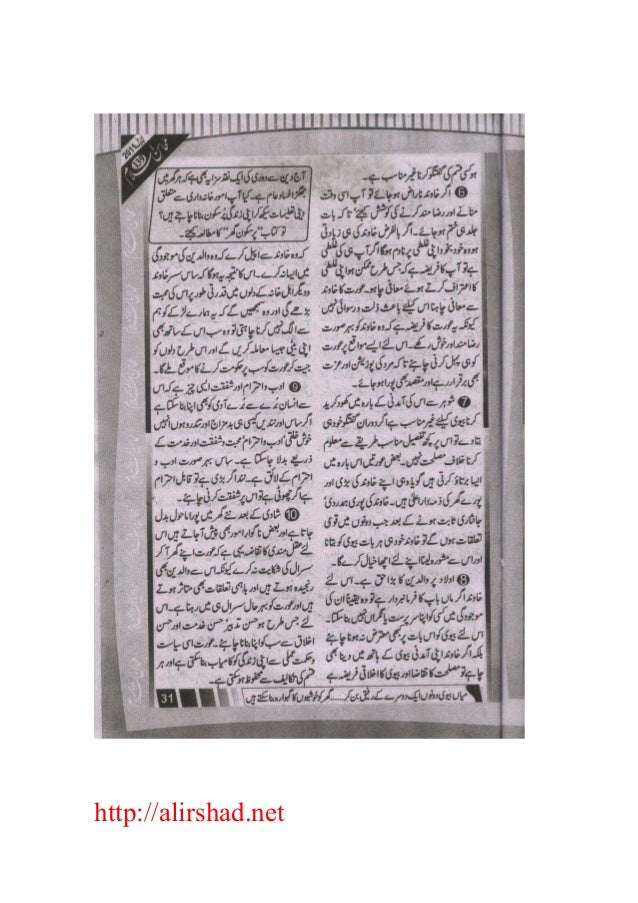 محاسن اسلام
2011
ہو کسی قسم کی گفتگو کرنا غیر مناسب ہے۔
6 اگر خاوند ناراض ہو جائے تو آپ اسی وقت
منانے اور رضا مند کرنے کی کوشش کیجئے تاکہ بات
جلد ہی ختم ہو جائے۔ اگر بالفرض خاوند کی ہی زیادتی
ہو وہ خود بخود اپنی غلطی پر نادم ہوگا اگر آپ ہی کی غلطی
ہے تو آپ کا فریضہ ہے کہ جس طرح ممکن ہو اپنی غلطی
کا اعتراف کرتے ہوئے معافی چاہو۔ عورت کا خاوند
سے معافی چاہنا اس کیلئے باعث ذلت ورسوائی نہیں
کیونکہ یہ عورت کا فریضہ ہے کہ وہ خاوند کو بہر صورت
رضا مند اور خوش رکھے۔ اس لئے ایسے مواقع پر عورت
کو ہی پہل کرنی چاہئے تاکہ مرد کی پوزیشن اور عزت
بھی برقرار رہے اور مقصد بھی پورا ہو جائے۔
7 شوہر سے اس کی آمدنی کے بارہ میں کھود کرید
کرنا بیوی کیلئے غیر مناسب ہے اگر دوران گفتگو خود ہی
بتا دے تو اس پر کچھ تفصیل مناسب طریقے سے معلوم
کرنا خلاف مصلحت نہیں۔ بعض عورتیں اس بارہ میں
ایسا برتاؤ کرتی ہیں گویا وہی اپنے خاوند کی بڑی اور
پورے گھر کی ذمہ دار اعلیٰ ہیں۔ خاوند کی پوری ہمدردی
جانثاری ثابت ہونے کے بعد جب دونوں میں قوی
تعلقات ہوں گے تو خاوند خود ہی ہر بات بیوی کو بتانا
اور اس سے مشورہ لینا اپنے لئے اچھا خیال کرے گا۔
8 اولاد پر والدین کا بڑا حق ہے۔ اس لئے
خاوند اگر ماں باپ کا فرمانبردار ہے تو وہ یقینا ان کی
موجودگی میں کسی کو اپنا سرپرست یا نگراں نہیں بنا سکتا۔
اس لئے بیوی کو اس بات پر کبھی معترض نہ ہونا چاہئے
بلکہ اگر خاوند اپنی آمدنی بیوی کے ہاتھ میں دینا بھی
چاہے تو مصلحت کا تقاضا اور بیوی کا اخلاقی فریضہ ہے
آج دین سے دوری کی ایک نقد سزا یہ بھی ہے کہ ہر گھر میں
جھگڑا فساد عام ہے۔ کیا آپ امور خانہ داری سے متعلق
دینی تعلیمات سیکھ کر اپنی زندگی پُرسکون بنانا چاہتے ہیں؟
تو کتاب "پرسکون گھر" کا مطالعہ کیجئے۔
کہ وہ خاوند سے اپیل کرے کہ وہ والدین کی موجودگی
میں ایسا نہ کرے۔ اس کا نتیجہ یہ ہوگا کہ ساس سسر خاوند
ودیگر اہل خانہ کے دلوں میں قدرتی طور پر اس کی محبت
بڑھے گی اور وہ سمجھیں گے کہ یہ ہمارے لڑکے کو ہم
سے الگ نہیں کرنا چاہتی تو وہ سب اس کے ساتھ بھی
اپنی بیٹی جیسا معاملہ کریں گے اور اس طرح دلوں کو
جیت کر عورت کو سب پر حکومت کرنے کا موقع ملے گا۔
9 ادب واحترام اور شفقت ایسی چیز ہے کہ اس
سے انسان بُرے سے بُرے آدمی کو بھی اپنا بنا سکتا ہے
اگر ساس اور نندیں کیسی ہی بد مزاج اور تند رو ہوں انہیں
خوش خلقی ادب واحترام محبت وشفقت اور خدمت کے
ذریعے بدلا جا سکتا ہے۔ ساس بہر صورت ادب و
احترام کے لائق ہے۔ نند اگر بڑی ہے تو قابل احترام
ہے اگر چھوٹی ہے تو اس پر شفقت کرنی چاہئے۔
10 شادی کے بعد نئے گھر میں پورا ماحول بدل
جاتا ہے اور بعض ناگوار امور بھی پیش آ جاتے ہیں اس
لئے عقل مندی کا تقاضہ یہی ہے کہ عورت اپنے گھر آ کر
سسرال کی شکایت نہ کرے کیونکہ اس سے والدین بھی
رنجیدہ ہوتے ہیں اور باہمی تعلقات بھی متاثر ہوتے
ہیں اور عورت کو بہر حال سسرال ہی میں رہنا ہے۔ اس
لئے جس طرح ہو حسن تدبیر حسن خدمت اور حسن
اخلاق سے سب کو اپنا بنانا چاہئے۔ عورت اسی سیاست
وحکمت عملی سے اپنی زندگی کو کامیاب بنا سکتی ہے اور ہر
قسم کی تکالیف سے محفوظ ہو سکتی ہے۔
میاں بیوی دونوں ایک دوسرے کے رفیق بن کر.....گھر کو خوشیوں کا گہوارہ بنا سکتے ہیں
31
http://alirshad.net